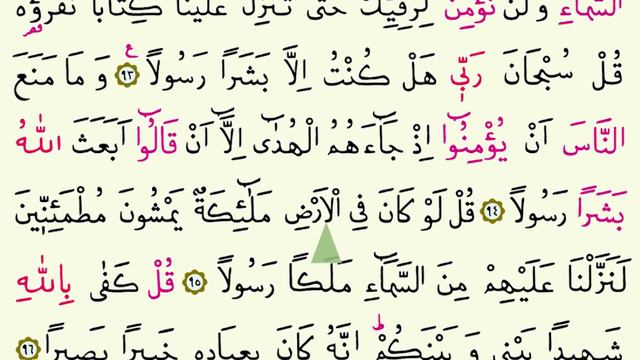 السَّمَآءِ وَ لَنْ نُّؤْمِنَ لِرُقِيِّكَ حَتّٰى تُنَزِّلَ عَلَيْنَا كِتٰبًا نَّقْرَؤُهٗ
قُلْ سُبْحَانَ رَبِّيْ هَلْ كُنْتُ اِلَّا بَشَرًا رَّسُوْلًا ﴿۹۳﴾ وَ مَا مَنَعَ
النَّاسَ اَنْ يُّؤْمِنُوْۤا اِذْ جَآءَهُمُ الْهُدٰۤى اِلَّاۤ اَنْ قَالُوْۤا اَبَعَثَ اللّٰهُ
بَشَرًا رَّسُوْلًا ﴿۹۴﴾ قُلْ لَّوْ كَانَ فِي الْاَرْضِ مَلٰٓئِكَةٌ يَّمْشُوْنَ مُطْمَئِنِّيْنَ
لَنَزَّلْنَا عَلَيْهِمْ مِّنَ السَّمَآءِ مَلَكًا رَّسُوْلًا ﴿۹۵﴾ قُلْ كَفٰى بِاللّٰهِ
شَهِيْدًۢا بَيْنِيْ وَ بَيْنَكُمْ ؕ اِنَّهٗ كَانَ بِعِبَادِهٖ خَبِيْرًۢا بَصِيْرًا ﴿۹۶﴾